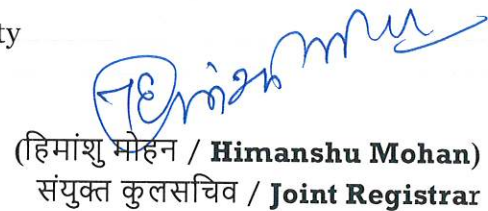 ty
(हिमांशु मोहन / Himanshu Mohan)
संयुक्त कुलसचिव / Joint Registrar